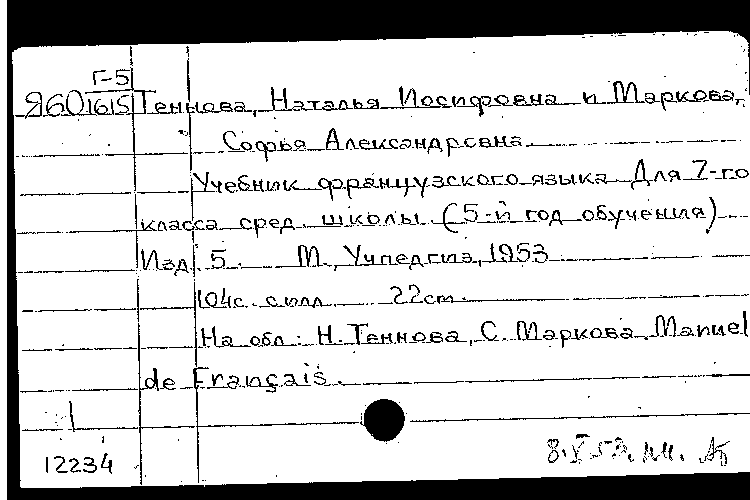 Г-5
Я60 1615 Теннова, Наталья Иосифовна и Маркова,
Софья Александровна
Учебник французского языка Для 7-го
класса сред. школы (5-й год обучения)
Изд. 5. М., Учпедгиз, 1953
104с. с илл. 22cm.
На обл: Н. Теннова, С. Маркова. Manuel
de Français.
1
12234
8.X 53.